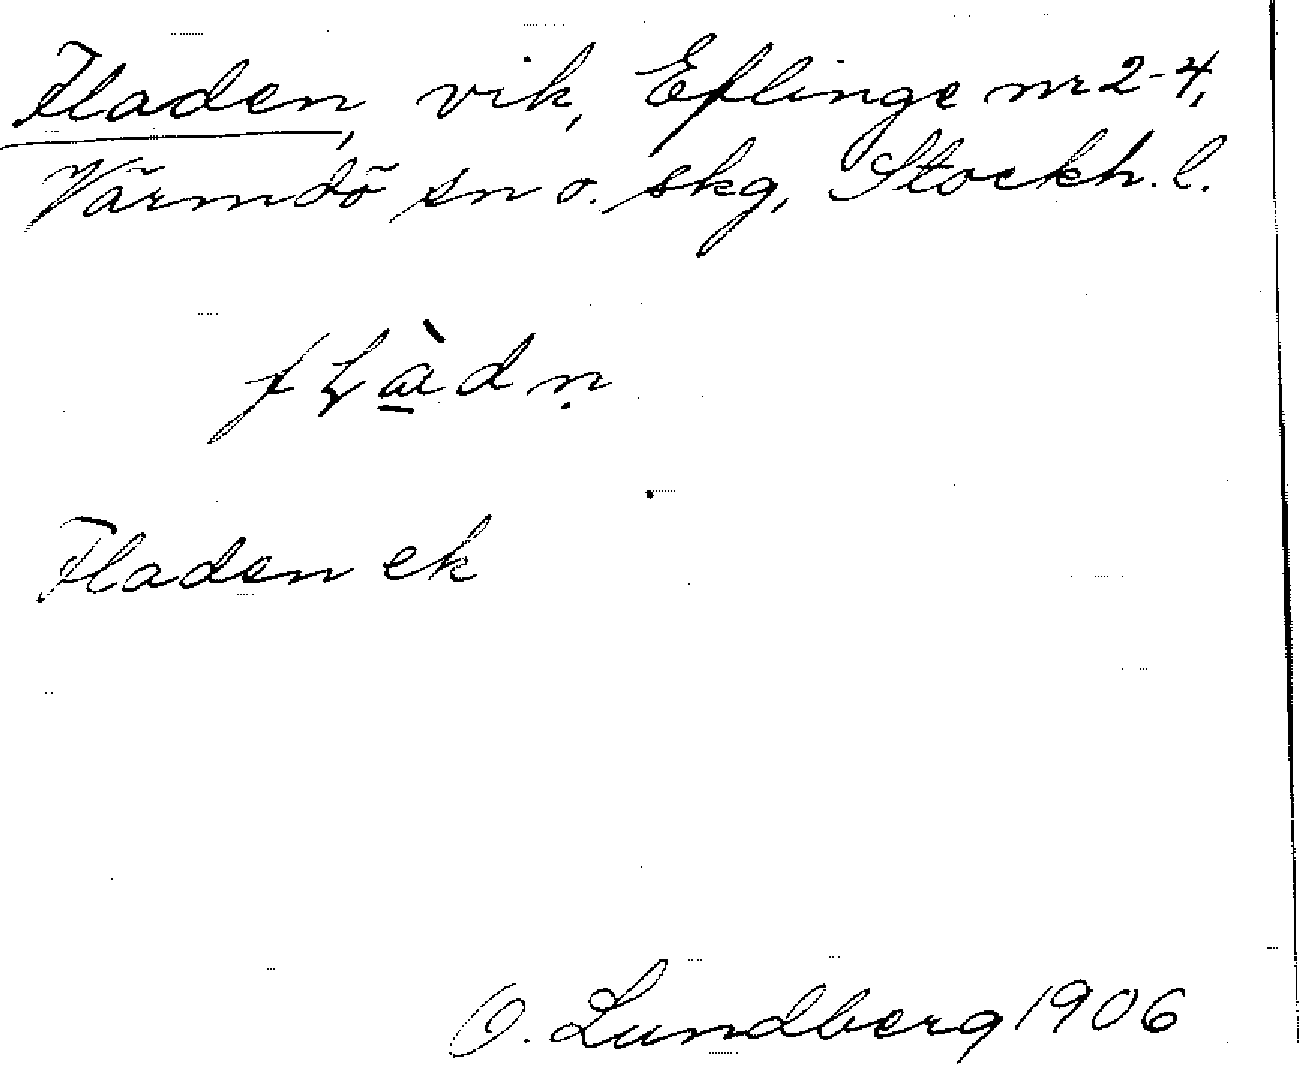 Fladen, vik, Eflinge nr 2-4,
Värmdö sn o. skg, Stockh. l.
fḷɑ̀dṇ
Fladen ek
O. Lundberg 1906